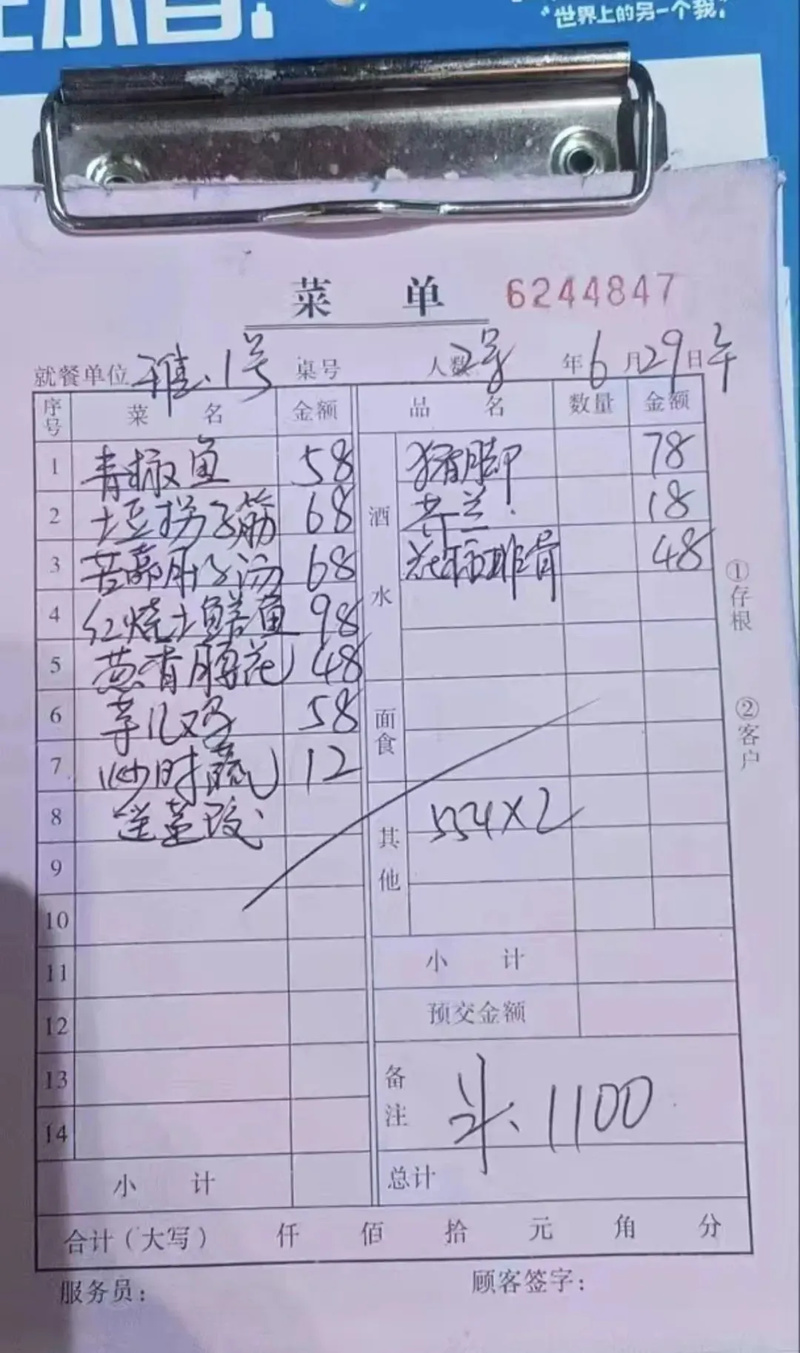 世界上的另一个我
菜 单 6244847
就餐单位 雅、1号 桌号 人数 2号 年 6 月 29 日 午
序号 菜 名 金额 品 名 数量 金额
1 青椒鱼 58 酒水 猪脚 78
2 土豆拐子筋 68 芥兰 18
3 肝子汤 68 排骨 48
4 红烧土鳝鱼 98
5 葱香腰花 48
6 芋儿鸡 58 面食
7 炒时蔬 12
8 其他 554X2
9
10
11 小 计
12 预交金额
13 备注 1100
14
小 计 总计
合计(大写) 仟 佰 拾 元 角 分
服务员: 顾客签字:
①存根
②客户